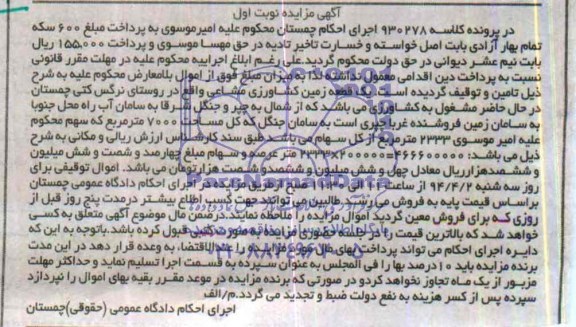 آگهی مزایده نوبت اول
در پرونده کلاسه ۹۳۰۲۷۸ اجرای احکام چمستان محکوم علیه امیرموسوی به پرداخت مبلغ ۶۰۰ سکه
تمام بهار آزادی بابت اصل خواسته و خسارت تاخیر تادیه در حق مهسا موسوی و پرداخت ۱۵۵,۰۰۰ ریال
بابت نیم عشر دیوانی در حق دولت محکوم گردید.علی رغم ابلاغ اجراییه محکوم علیه در مهلت مقرر قانونی
نسبت به پرداخت دین اقدامی معمول نداشته لذا به میزان مبلغ فوق از اموال بلامعارض محکوم علیه به شرح
ذیل تامین و توقیف گردیده است. یک قطعه زمین کشاورزی مشاعی واقع در روستای نرگس کتی چمستان
در حال حاضر مشغول به کشاورزی می باشد که از شمال به جیر و جنگل شرقا به سامان آب راه محل جنوبا
به سامان زمین فروشنده غربا جیری است به سامان جنگل که کل مساحت ۷۰۰۰ مترمربع که سهم محکوم
علیه امیر موسوی ۲۳۳۳ مترمربع از کل سهام می باشد طبق سند کارشناس ارزش ریالی و مکانی به شرح
ذیل می باشد: ۴۶۶۶۶۰۰۰۰۰=۲۳۳۳×۲۰۰۰۰۰۰ متر عرصه و سهام مبلغ چهارصد و شصت و شش میلیون
و ششصدهزارریال معادل چهل و شش میلیون و ششصدو شصت هزارتومان می باشد. اموال توقیفی برای
روز سه شنبه ۹۴/۴/۲ از ساعت ۱۱ الی ۱۱:۳۰ صبح از طریق مزایده در اجرای احکام دادگاه عمومی چمستان
براساس قیمت پایه به فروش می رسد. طالبین می توانند جهت کسب اطلاع بیشتر درمدت پنج روز قبل از
روزی که برای فروش معین گردید اموال مزایده را ملاحظه نمایند.درضمن مال موضوع آگهی متعلق به کسی
خواهد شد که بالاترین قیمت را در جلسه حضوری مزایده به صورت کتبی قبول کرده باشد.باتوجه به این که
دایره اجرای احکام می تواند پرداخت بهای مال مورد مزایده را عندالاقتضا، به وعده قرار دهد در این مدت
برنده مزایده باید ۱۰درصد بها را فی المجلس به عنوان سپرده به قسمت اجرا تسلیم نماید و حداکثر مهلت
مزبور از یک ماه تجاوز نخواهد کردو در صورتی که برنده مزایده در موعد مقرر بقیه بهای اموال را نپردازد
سپرده پس از کسر هزینه به نفع دولت ضبط و تجدید می گردد.م/الف
اجرای احکام دادگاه عمومی (حقوقی)چمستان